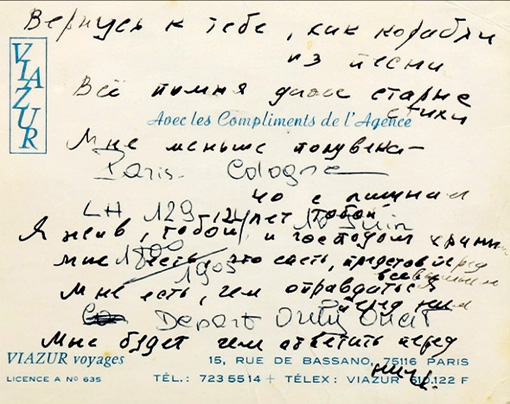 Вернусь к тебе, как корабли
из песни
VIAZUR
Всё помня даже старые
стихи
Avec les Compliments de l'Agence
Мне меньше полувека-
Paris- Cologne
40 с лишним
LH 129 лет тобой Juin
Я жив, тобой и господом храним
мне есть, что спеть, представ перед
всевышним
1905
Мне есть, чем оправдаться
перед ним
Depart Orly Ouest
Мне будет чем ответить перед
ним
VIAZUR voyages 15, RUE DE BASSANO, 75116 PARIS
LICENCE A N° 635 TÉL.: 723 55 14 + TÉLEX: VIAZUR 610.122 F